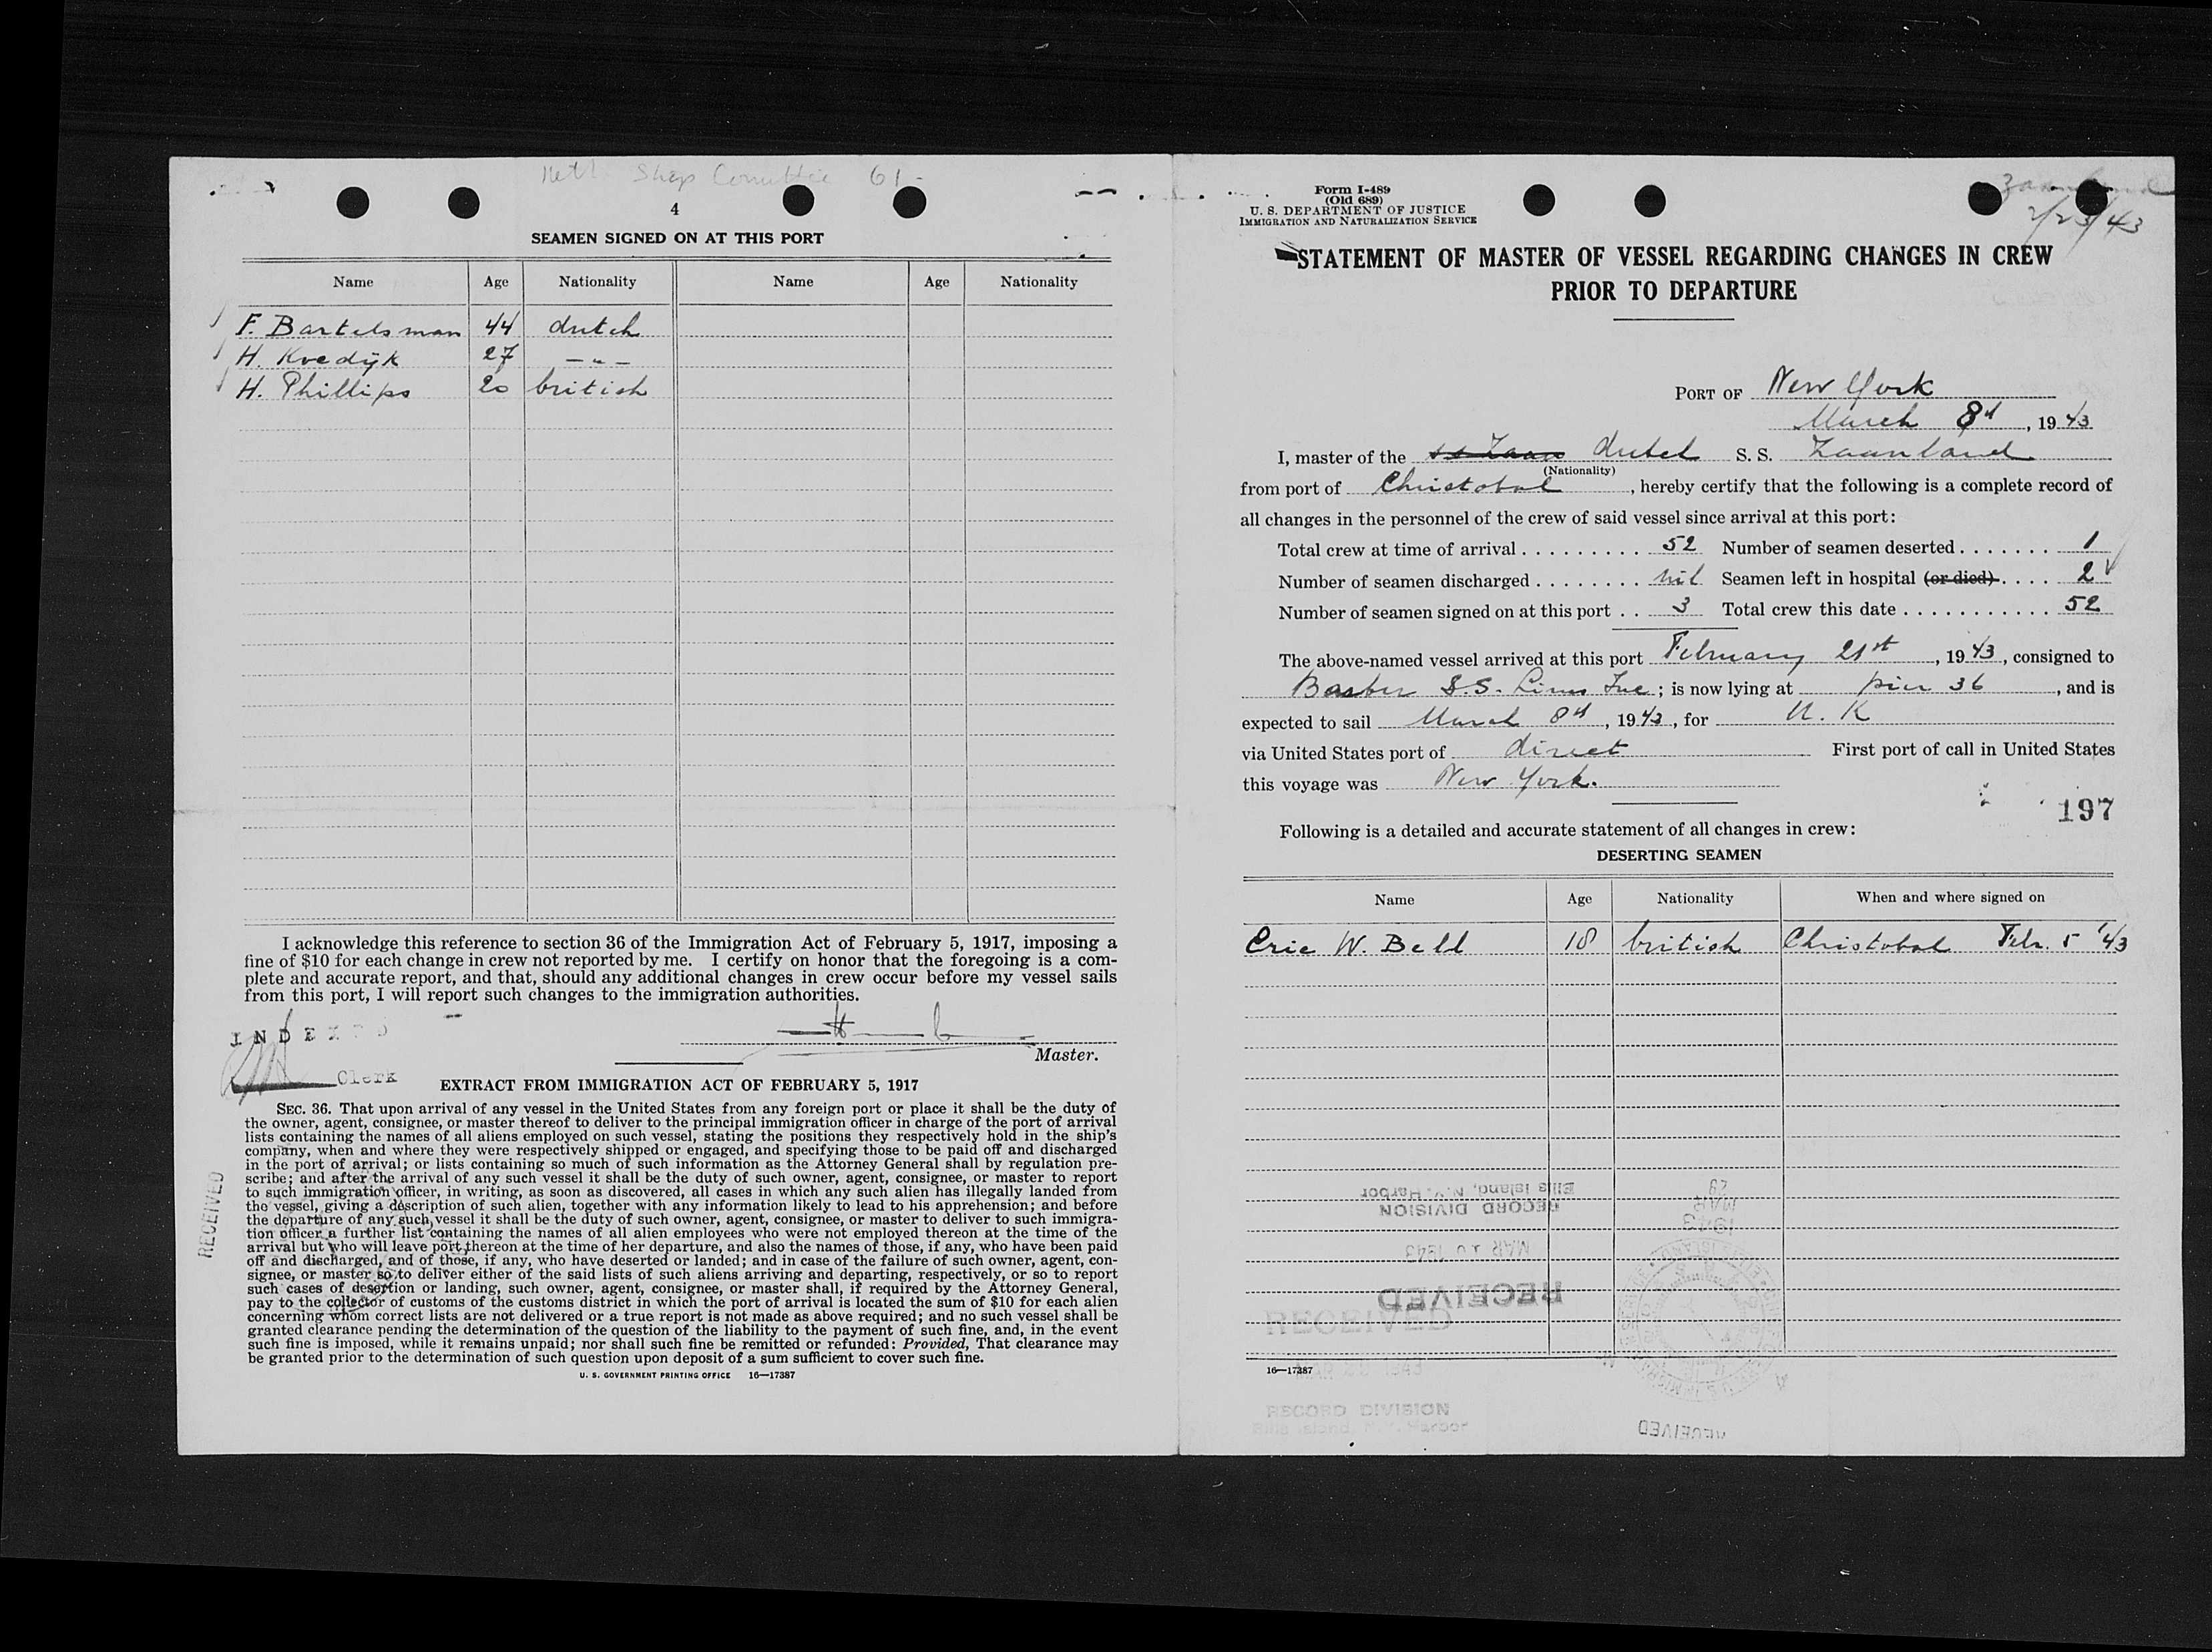 4
SEAMEN SIGNED ON AT THIS PORT
Name Age Nationality Name Age Nationality
F. Bartelsman 44 dutch
H. Kvedijk 27 — " —
H. Phillips 20 british
I acknowledge this reference to section 36 of the Immigration Act of February 5, 1917, imposing a
fine of $10 for each change in crew not reported by me. I certify on honor that the foregoing is a com-
plete and accurate report, and that, should any additional changes in crew occur before my vessel sails
from this port, I will report such changes to the immigration authorities.
INDEXED
Master.
Clerk
EXTRACT FROM IMMIGRATION ACT OF FEBRUARY 5, 1917
SEC. 36. That upon arrival of any vessel in the United States from any foreign port or place it shall be the duty of
the owner, agent, consignee, or master thereof to deliver to the principal immigration officer in charge of the port of arrival
lists containing the names of all aliens employed on such vessel, stating the positions they respectively hold in the ship's
company, when and where they were respectively shipped or engaged, and specifying those to be paid off and discharged
in the port of arrival; or lists containing so much of such information as the Attorney General shall by regulation pre-
scribe; and after the arrival of any such vessel it shall be the duty of such owner, agent, consignee, or master to report
to such immigration officer, in writing, as soon as discovered, all cases in which any such alien has illegally landed from
the vessel, giving a description of such alien, together with any information likely to lead to his apprehension; and before
the departure of any such vessel it shall be the duty of such owner, agent, consignee, or master to deliver to such immigra-
tion officer a further list containing the names of all alien employees who were not employed thereon at the time of the
arrival but who will leave port thereon at the time of her departure, and also the names of those, if any, who have been paid
off and discharged, and of those, if any, who have deserted or landed; and in case of the failure of such owner, agent, con-
signee, or master so to deliver either of the said lists of such aliens arriving and departing, respectively, or so to report
such cases of desertion or landing, such owner, agent, consignee, or master shall, if required by the Attorney General,
pay to the collector of customs of the customs district in which the port of arrival is located the sum of $10 for each alien
concerning whom correct lists are not delivered or a true report is not made as above required; and no such vessel shall be
granted clearance pending the determination of the question of the liability to the payment of such fine, and, in the event
such fine is imposed, while it remains unpaid; nor shall such fine be remitted or refunded: Provided, That clearance may
be granted prior to the determination of such question upon deposit of a sum sufficient to cover such fine.
U. S. GOVERNMENT PRINTING OFFICE 16—17387
RECEIVED
Form I-489
(Old 689)
U. S. DEPARTMENT OF JUSTICE
IMMIGRATION AND NATURALIZATION SERVICE
2/23/43
STATEMENT OF MASTER OF VESSEL REGARDING CHANGES IN CREW
PRIOR TO DEPARTURE
PORT OF New York
March 8th, 1943
I, master of the ss Zaan dutch S. S. Zaanland
(Nationality)
from port of Christobal, hereby certify that the following is a complete record of
all changes in the personnel of the crew of said vessel since arrival at this port:
Total crew at time of arrival . . . . . . . . . 52 Number of seamen deserted . . . . . . . 1
Number of seamen discharged . . . . . . . . nil Seamen left in hospital (or died) . . . . 2
Number of seamen signed on at this port . . 3 Total crew this date . . . . . . . . . . . 52
The above-named vessel arrived at this port February 21st, 1943, consigned to
Barber S.S. Lines Inc; is now lying at pier 36, and is
expected to sail March 8th, 1943, for U. K
via United States port of direct First port of call in United States
this voyage was New York.
197
Following is a detailed and accurate statement of all changes in crew:
DESERTING SEAMEN
Name Age Nationality When and where signed on
Eric W. Bell 18 british Christobal Febr. 5 '43
Ellis Island, N.Y. Harbor
RECORD DIVISION
RECEIVED
RECEIVED
16—17387
RECORD DIVISION
Ellis Island, N.Y. Harbor
RECEIVED